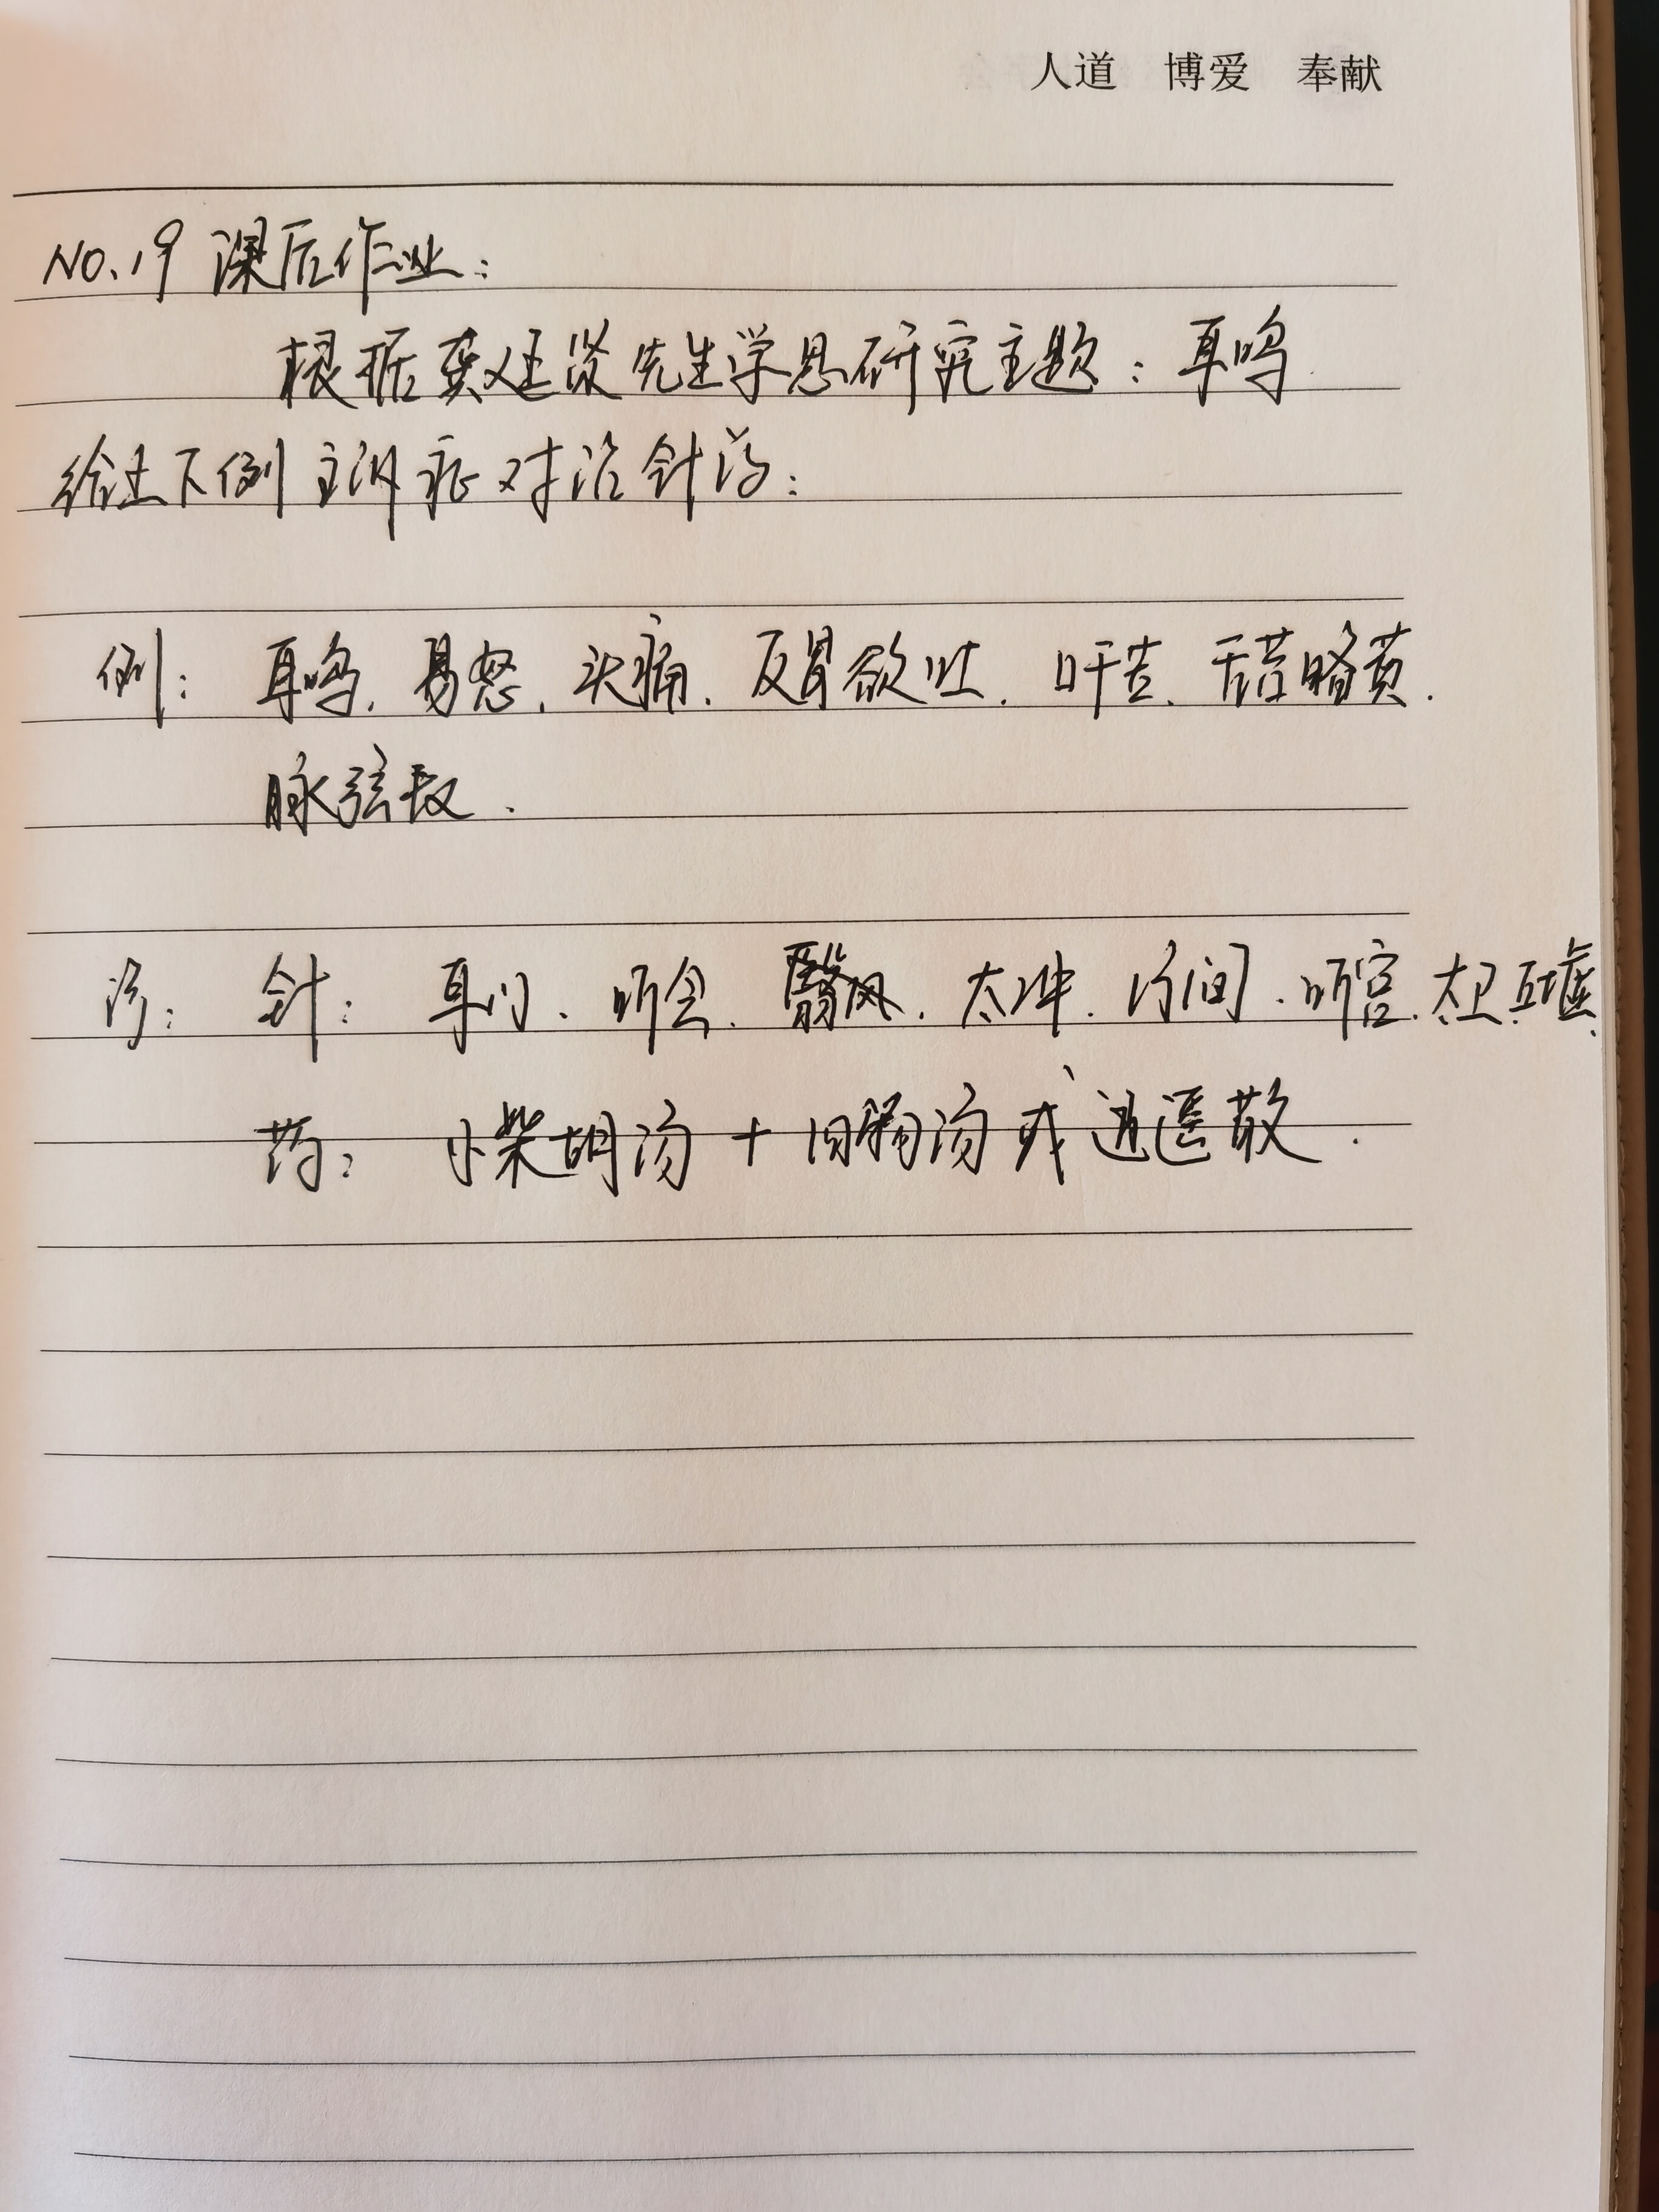 人道 博爱 奉献
NO.19 课后作业:
根据龚廷贤先生学思研究主题:耳鸣
给出下例主诉症对治针汤:
例: 耳鸣.易怒.头痛.反胃欲吐.口干苦.舌苔略黄.
脉弦数.
治: 针: 耳门.听会.翳风.太冲.行间.听宫.太卫丘墟.
药: 小柴胡汤+汤或逍遥散.